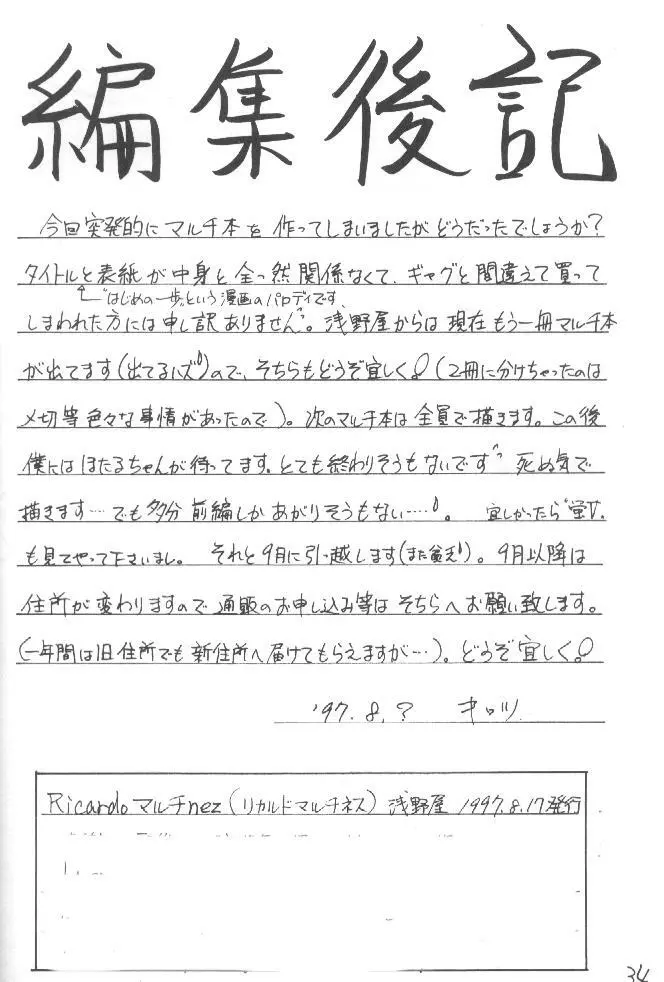 編集後記
今回突発的にマルチ本を作ってしまいましたがどうだったでしょうか?
タイトルと表紙が中身と全っ然関係なくて、ギャグと間違えて買って
"はじめの一歩"という漫画のパロディです、
しまわれた方には申し訳ありません^^。浅野屋からは現在もう一冊マルチ本
が出てます(出てるハズ)ので、そちらもどうぞ宜しく!(2冊に分けちゃったのは
〆切等色々な事情があったので)。次のマルチ本は全員で描きます。この後
僕にはほたるちゃんが待ってます。とても終わりそうもないです^^死ぬ気で
描きます…でも多分前編しかあがりそうもない……。宜しかったら"蛍Ⅴ"
も見てやって下さいまし。それと9月に引っ越します(また貧乏)。9月以降は
住所が変わりますので通販のお申し込み等はそちらへお願い致します。
(一年間は旧住所でも新住所へ届けてもらえますが…)。どうぞ宜しく。!
'97.8.? キロツ
Ricardoマルチnez(リカルドマルチネス)浅野屋 1997.8.17発行
34